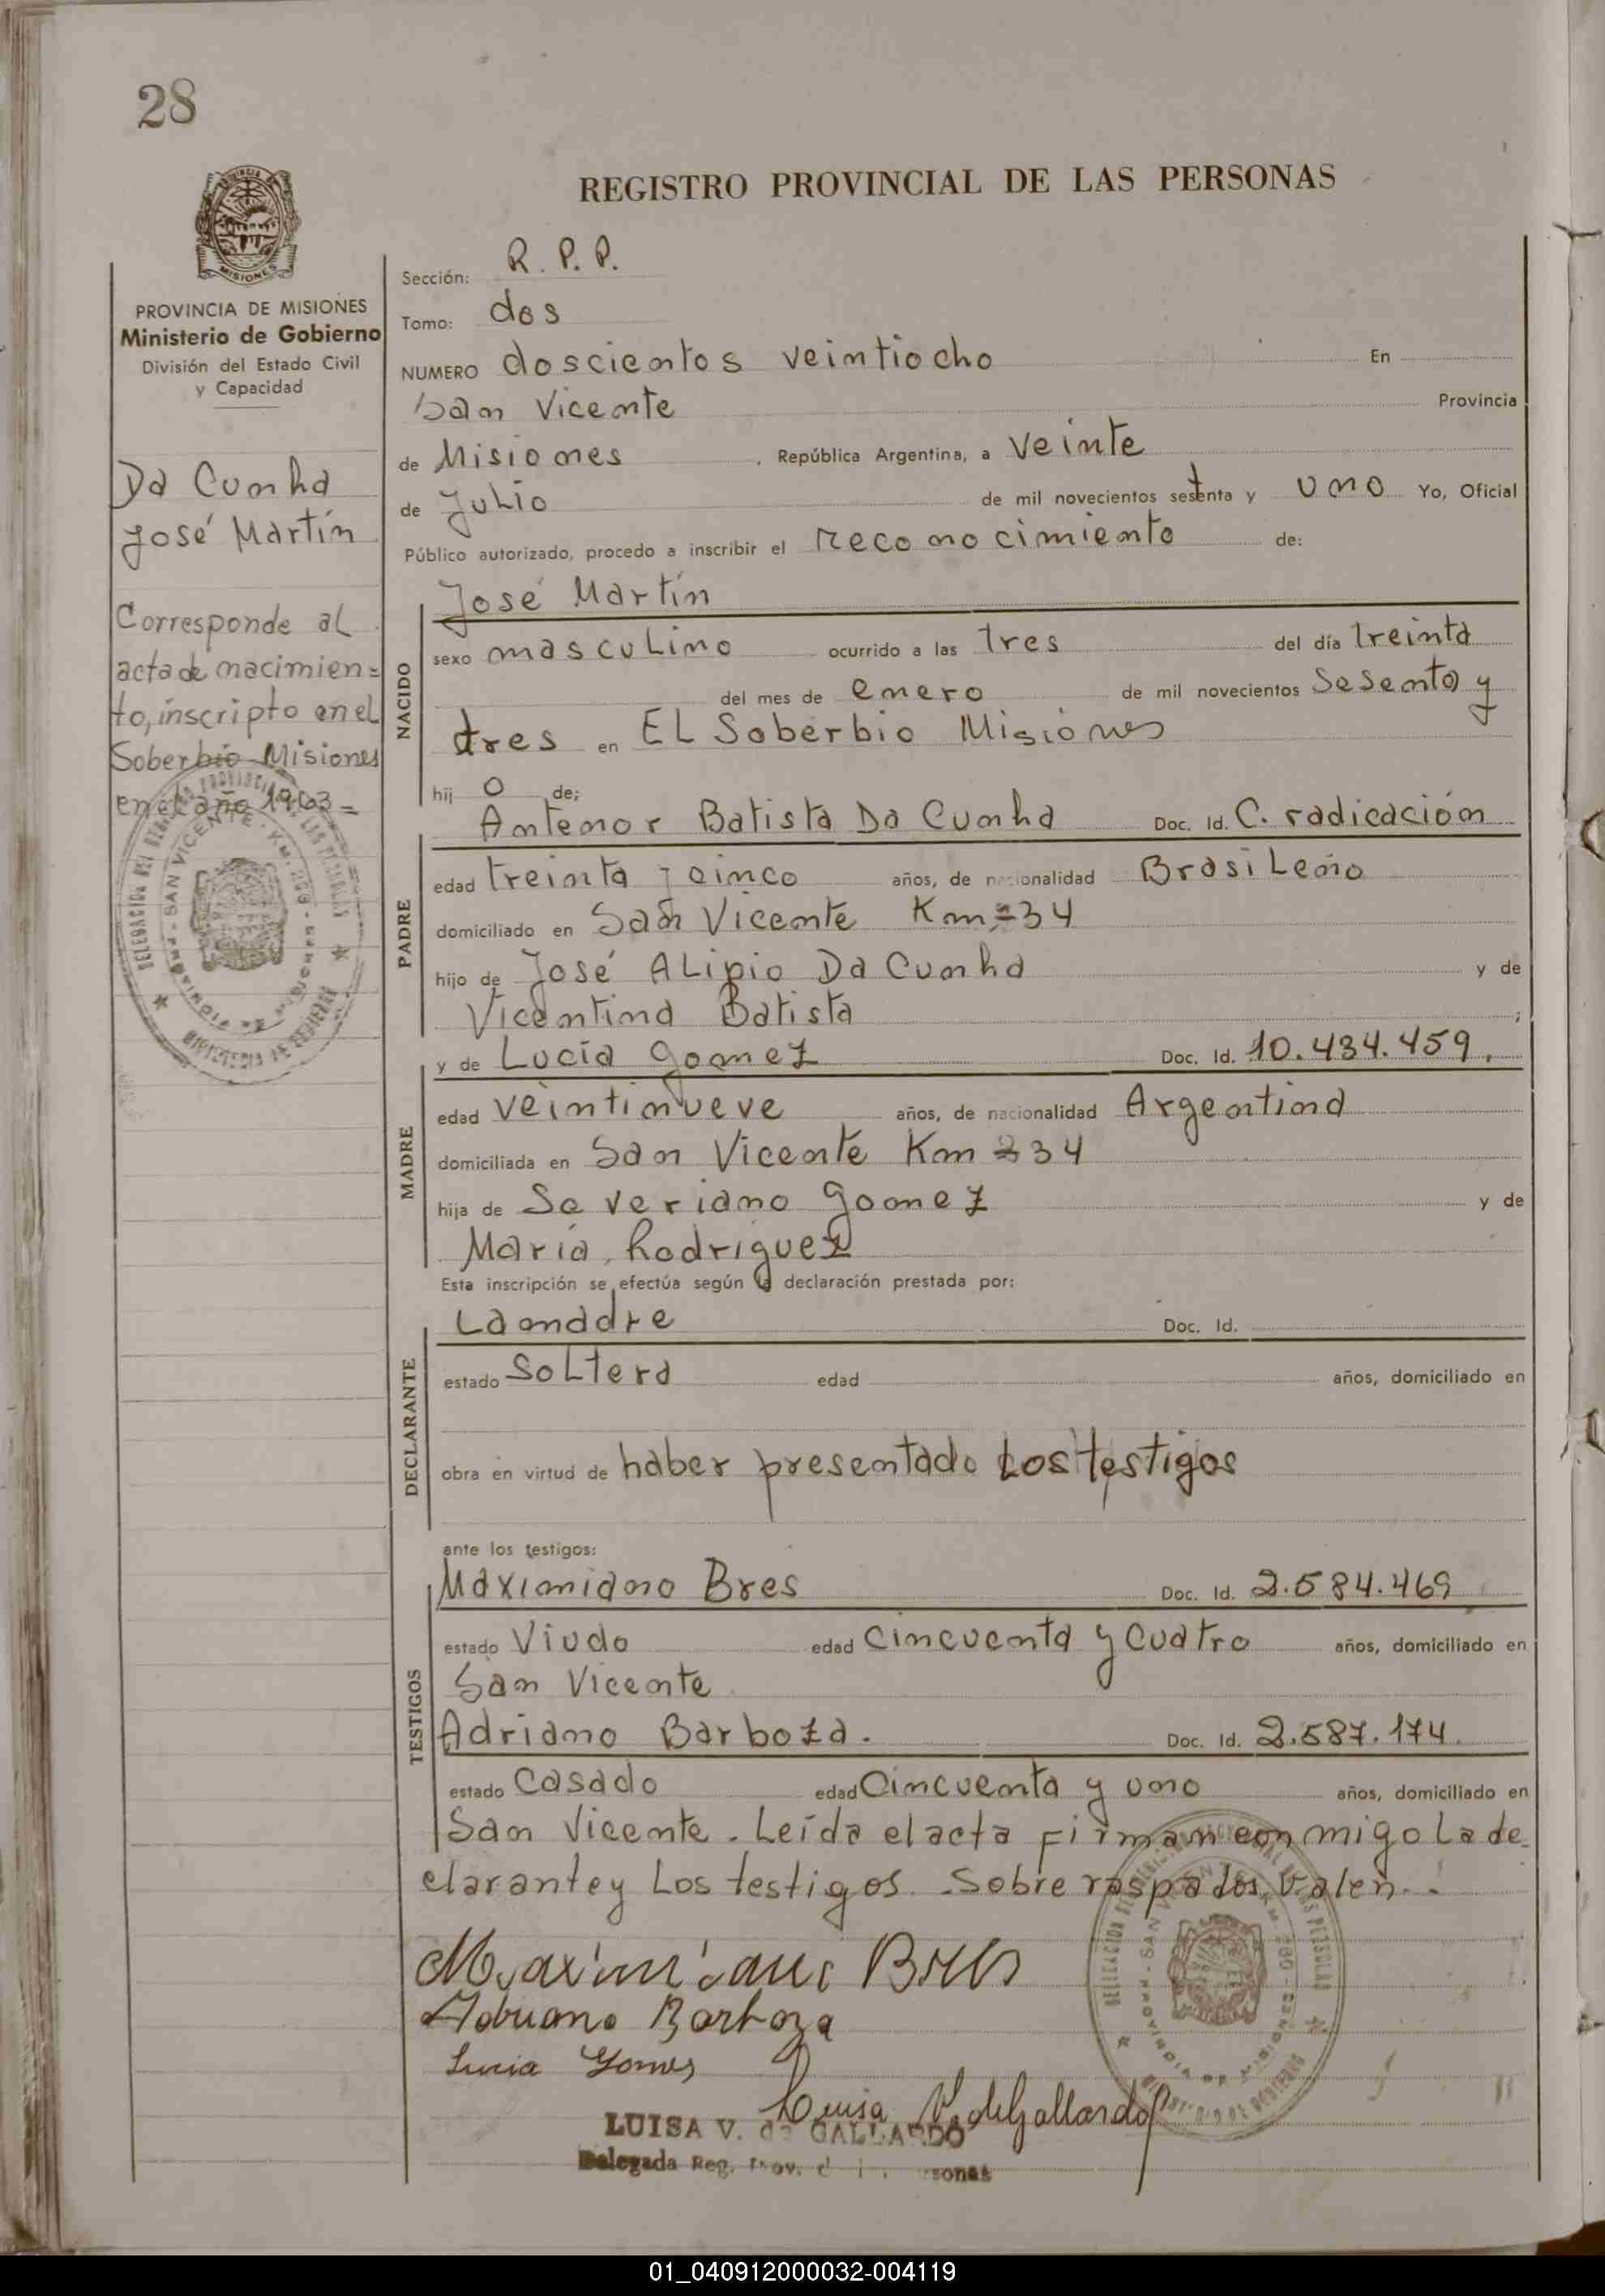 28
REGISTRO PROVINCIAL DE LAS PERSONAS
PROVINCIA DE MISIONES
Ministerio de Gobierno
División del Estado Civil
y Capacidad
Da Cunha
José Martín
Corresponde al
acta de nacimien=
to, inscripto en el
Soberbio Misiones
en el año 1963=
Sección: R. P. P.
Tomo: dos
NUMERO doscientos veintiocho En
San Vicente Provincia
de Misiones , República Argentina, a Veinte
de Julio de mil novecientos setenta y uno Yo, Oficial
Público autorizado, procedo a inscribir el reconocimiento de:
José Martín
NACIDO
sexo masculino ocurrido a las tres del día treinta
del mes de enero de mil novecientos Sesenta y
tres en El Soberbio Misiones
hij o de;
Antenor Batista Da Cunha Doc. Id. C. radicación
PADRE
edad treinta y cinco años, de nacionalidad Brasileño
domiciliado en San Vicente Km=34
hijo de José Alipio Da Cunha y de
Vicentina Batista ;
y de Lucía Gomez Doc. Id. 10.434.459,
MADRE
edad veintinueve años, de nacionalidad Argentina
domiciliada en San Vicente Km 34
hija de Saveriano Gomez y de
María Rodriguez
Esta inscripción se efectúa según la declaración prestada por:
La madre Doc. Id.
DECLARANTE
estado Soltera edad años, domiciliado en
obra en virtud de haber presentado Los testigos
ante los testigos:
Maximiano Bres Doc. Id. 2.584.469
TESTIGOS
estado Viudo edad Cincuenta y cuatro años, domiciliado en
San Vicente
Adriano Barboza. Doc. Id. 2.587.174
estado Casado edad Cincuenta y uno años, domiciliado en
San Vicente. Leída el acta firman conmigo La de-
clarante y Los testigos. Sobre raspados Valen.
Maximiano Bres
Adriano Barboza
Lucia Gomes
Luisa V. de Gallardo
LUISA V. de GALLARDO
Delegada Reg. Prov.
01_040912000032-004119